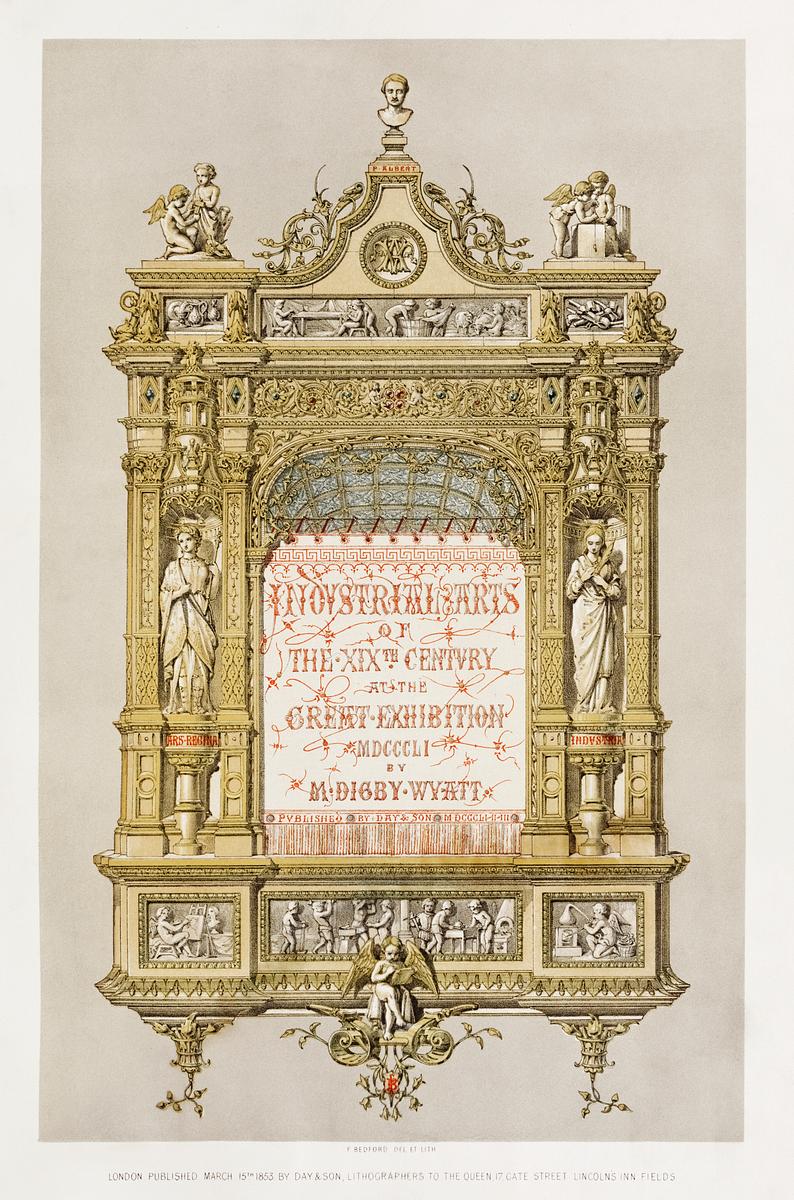 P. ALBERT
INDVSTRIAL ARTS
OF
THE·XIXTH CENTVRY
AT·THE
GREAT·EXHIBITION
MDCCCLI
BY
M·DIGBY·WYATT
PUBLISHED BY·DAY & SON
ARS-REGINA
INDVSTRIA
F BEDFORD DEL ET LITH
LONDON PUBLISHED MARCH 15TH 1853 BY DAY & SON, LITHOGRAPHERS TO THE QUEEN, 17, GATE STREET LINCOLNS INN FIELDS